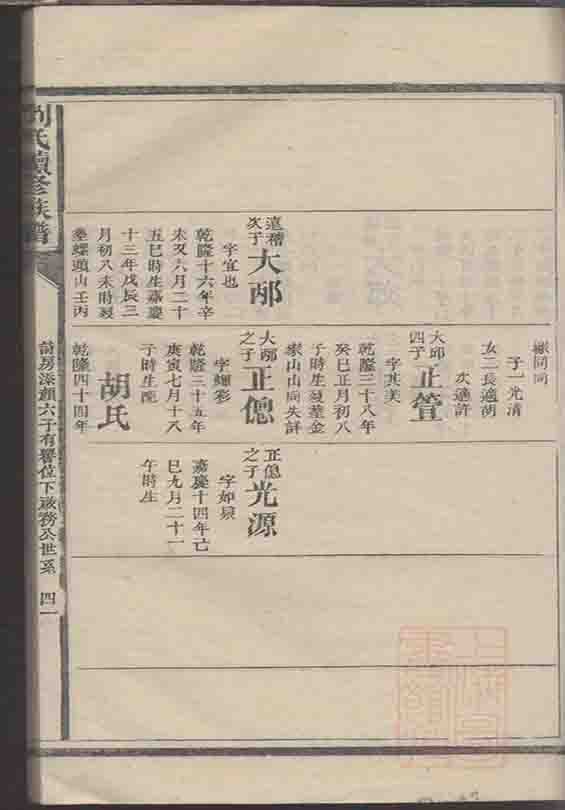 大邴
次子
字宜也
乾隆十六年辛
未又六月二十
五巳時生嘉慶
十三年戊辰三
月初八未時歿
葬螺頭山壬丙
同同
子一光清
女二長適胡
次適許
大邱
四子
正管
字其美
乾隆三十八年
癸巳正月初八
子時生歿葬金
家山山向失詳
大邴
之子
正偲
字耀彩
乾隆三十五年
庚寅七月十八
子時生配
胡氏
乾隆四十四年
正偲
之子
光源
嘉慶十四年亡
巳九月二十一
午時生
劉氏續修族譜
六子有譽位下啟務公世系
四一